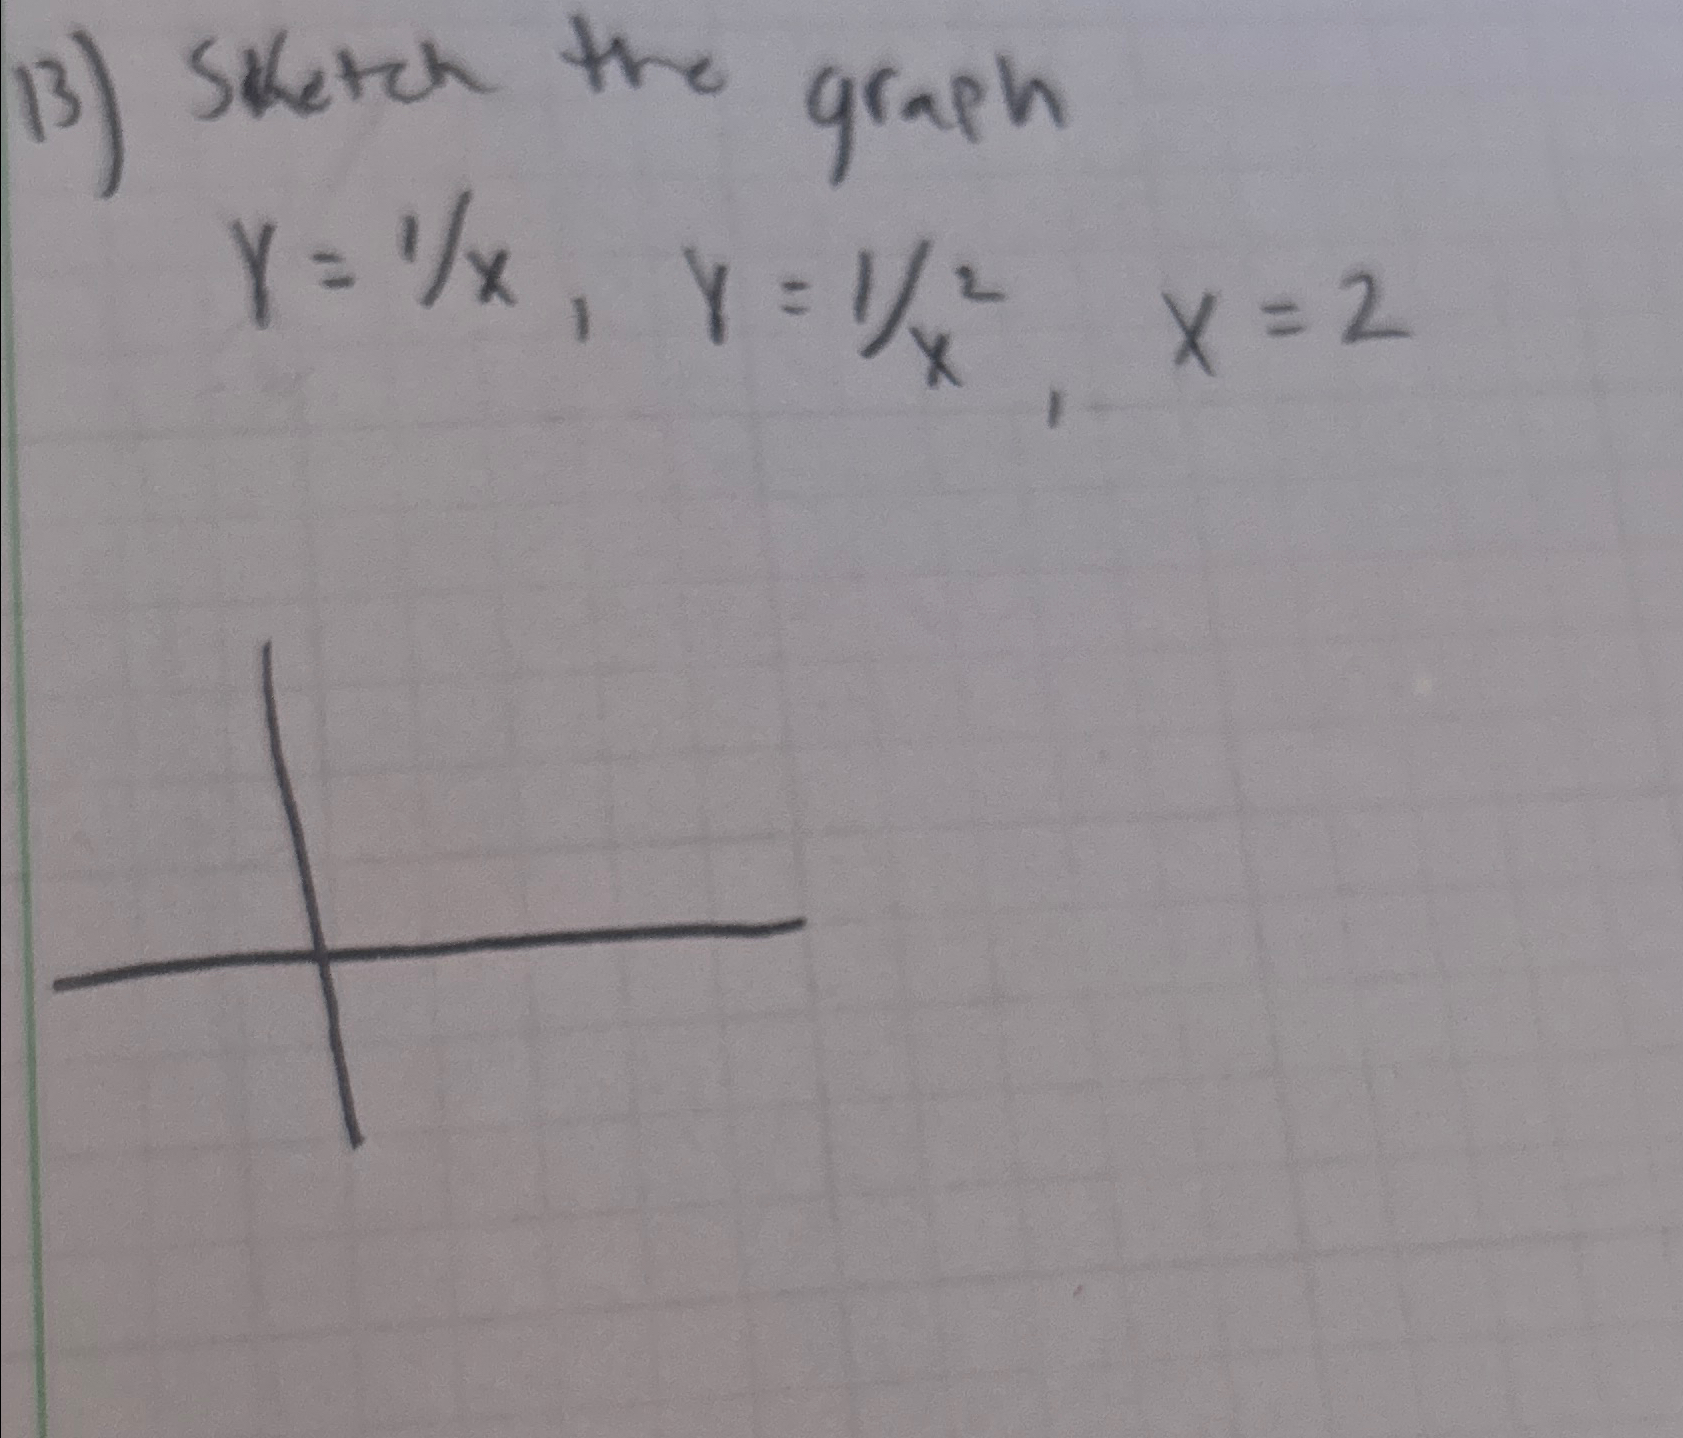 13) Sketch the graph
Y = 1/x, Y = 1/x², X = 2